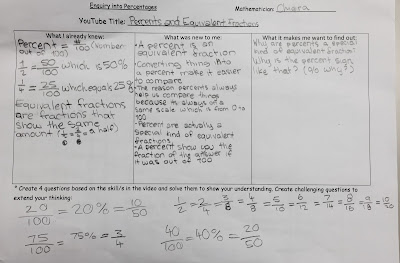 Enquiry into Percentages
Mathematician: Chiara
YouTube Title: Percents and Equivalent Fractions
What I already know:
Percent = #/100 (number
out of 100)
1/2 = 50/100 which is 50%
1/4 = 25/100 which equals 25%
Equivalent fractions
are fractions that
show the same
amount
What was new to me:
• A percent is an
equivalent fraction
Converting things into
a percent make it easier
to compare
• The reason percents always
help us compare things
because its always of a
same scale which is from 0 to
100
• Percent are actually a
Special kind of equivalent
fractions
• A percent show you the
fraction of the answer if
it was out of 100
What it makes me want to find out:
Why are percents a special
kind of equivalent fraction?
Why is the percent sign
like that? (% why?)
* Create 4 questions based on the skill/s in the video and solve them to show your understanding. Create challenging questions to
extend your thinking:
20/100 = 20% = 10/50
1/2 = 2/4 = 3/6 = 4/8 = 5/10 = 6/12 = 7/14 = 8/16 = 9/18 = 10/20
75/100 = 75% = 3/4
40/100 = 40% = 20/50